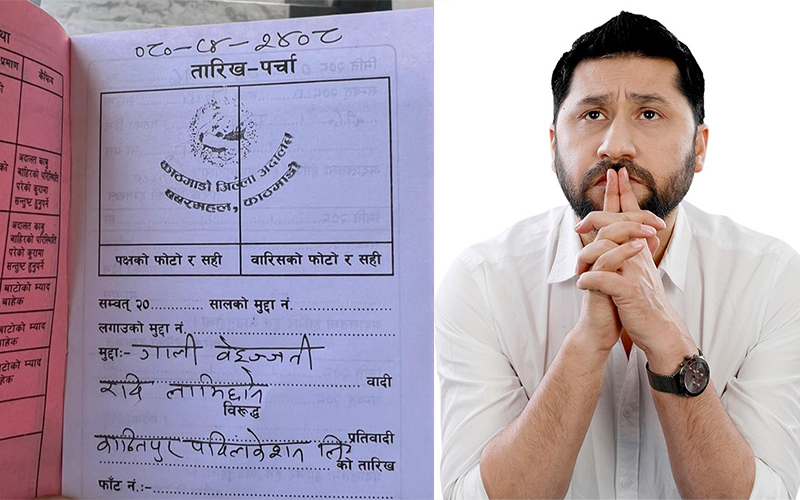 था
प्रमाण कैफियत
अदालत काबु
बाहिरको परिस्थिति
परेको कुरामा
सन्तुष्ट हुनुपर्ने
अदालत काबु
बाहिरको परिस्थिति
परेको कुरामा
सन्तुष्ट हुनुपर्ने
बाटोको म्याद
बाहेक
बाटोको म्याद
बाहेक
बाटोको म्याद
बाहेक
०८०-८४-२४०८
तारिख-पर्चा
काठमाडौं जिल्ला अदालत
बबरमहल, काठमाडौं
पक्षको फोटो र सही वारिसको फोटो र सही
सम्वत् २०........... सालको मुद्दा नं. ........................
लगाउको मुद्दा नं. ................................................
मुद्दाः- गाली बेइज्जती
रवि लामिछाने वादी
विरुद्ध
कान्तिपुर पब्लिकेशन लि. प्रतिवादी
को तारिख
फाँट नं.:-